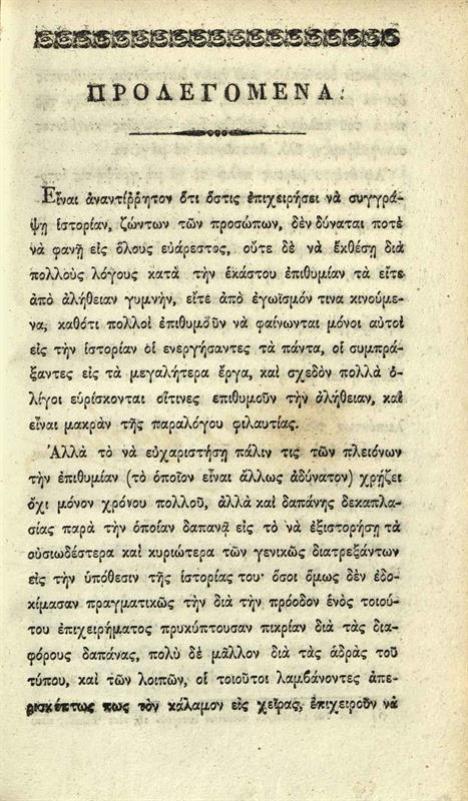 ΠΡΟΛΕΓΟΜΕΝΑ.
Εἶναι ἀναντίῤῥητον ὅτι ὅστις ἐπιχειρήσει νὰ συγγρά-
ψῃ ἱστορίαν, ζώντων τῶν προσώπων, δὲν δύναται ποτὲ
νὰ φανῇ εἰς ὅλους εὐάρεστος, οὔτε δὲ νὰ ἐκθέσῃ διὰ
πολλοὺς λόγους κατὰ τὴν ἑκάστου ἐπιθυμίαν τὰ εἴτε
ἀπὸ ἀλήθειαν γυμνὴν, εἴτε ἀπὸ ἐγωϊσμόν τινα κινούμε-
να, καθότι πολλοὶ ἐπιθυμοῦν νὰ φαίνωνται μόνοι αὐτοὶ
εἰς τὴν ἱστορίαν οἱ ἐνεργήσαντες τὰ πάντα, οἱ συμπρά-
ξαντες εἰς τὰ μεγαλήτερα ἔργα, καὶ σχεδὸν πολλὰ ὀ-
λίγοι εὑρίσκονται οἵτινες ἐπιθυμοῦν τὴν ἀλήθειαν, καὶ
εἶναι μακρὰν τῆς παραλόγου φιλαυτίας.
Ἀλλὰ τὸ νὰ εὐχαριστήσῃ πάλιν τις τῶν πλειόνων
τὴν ἐπιθυμίαν (τὸ ὁποῖον εἶναι ἄλλως ἀδύνατον) χρῄζει
ὄχι μόνον χρόνου πολλοῦ, ἀλλὰ καὶ δαπάνης δεκαπλα-
σίας παρὰ τὴν ὁποίαν δαπανᾷ εἰς τὸ νὰ ἐξιστορήσῃ τὰ
οὐσιωδέστερα καὶ κυριώτερα τῶν γενικῶς διατρεξάντων
εἰς τὴν ὑπόθεσιν τῆς ἱστορίας του· ὅσοι ὅμως δὲν ἐδο-
κίμασαν πραγματικῶς τὴν διὰ τὴν πρόοδον ἑνὸς τοιού-
του ἐπιχειρήματος πρυκύπτουσαν πικρίαν διὰ τὰς δια-
φόρους δαπάνας, πολὺ δὲ μᾶλλον διὰ τὰς ἁδρὰς τοῦ
τύπου, καὶ τῶν λοιπῶν, οἱ τοιοῦτοι λαμβάνοντες ἀπε-
ρισκέπτως πως τὸν κάλαμον εἰς χεῖρας, ἐπιχειροῦν νὰ